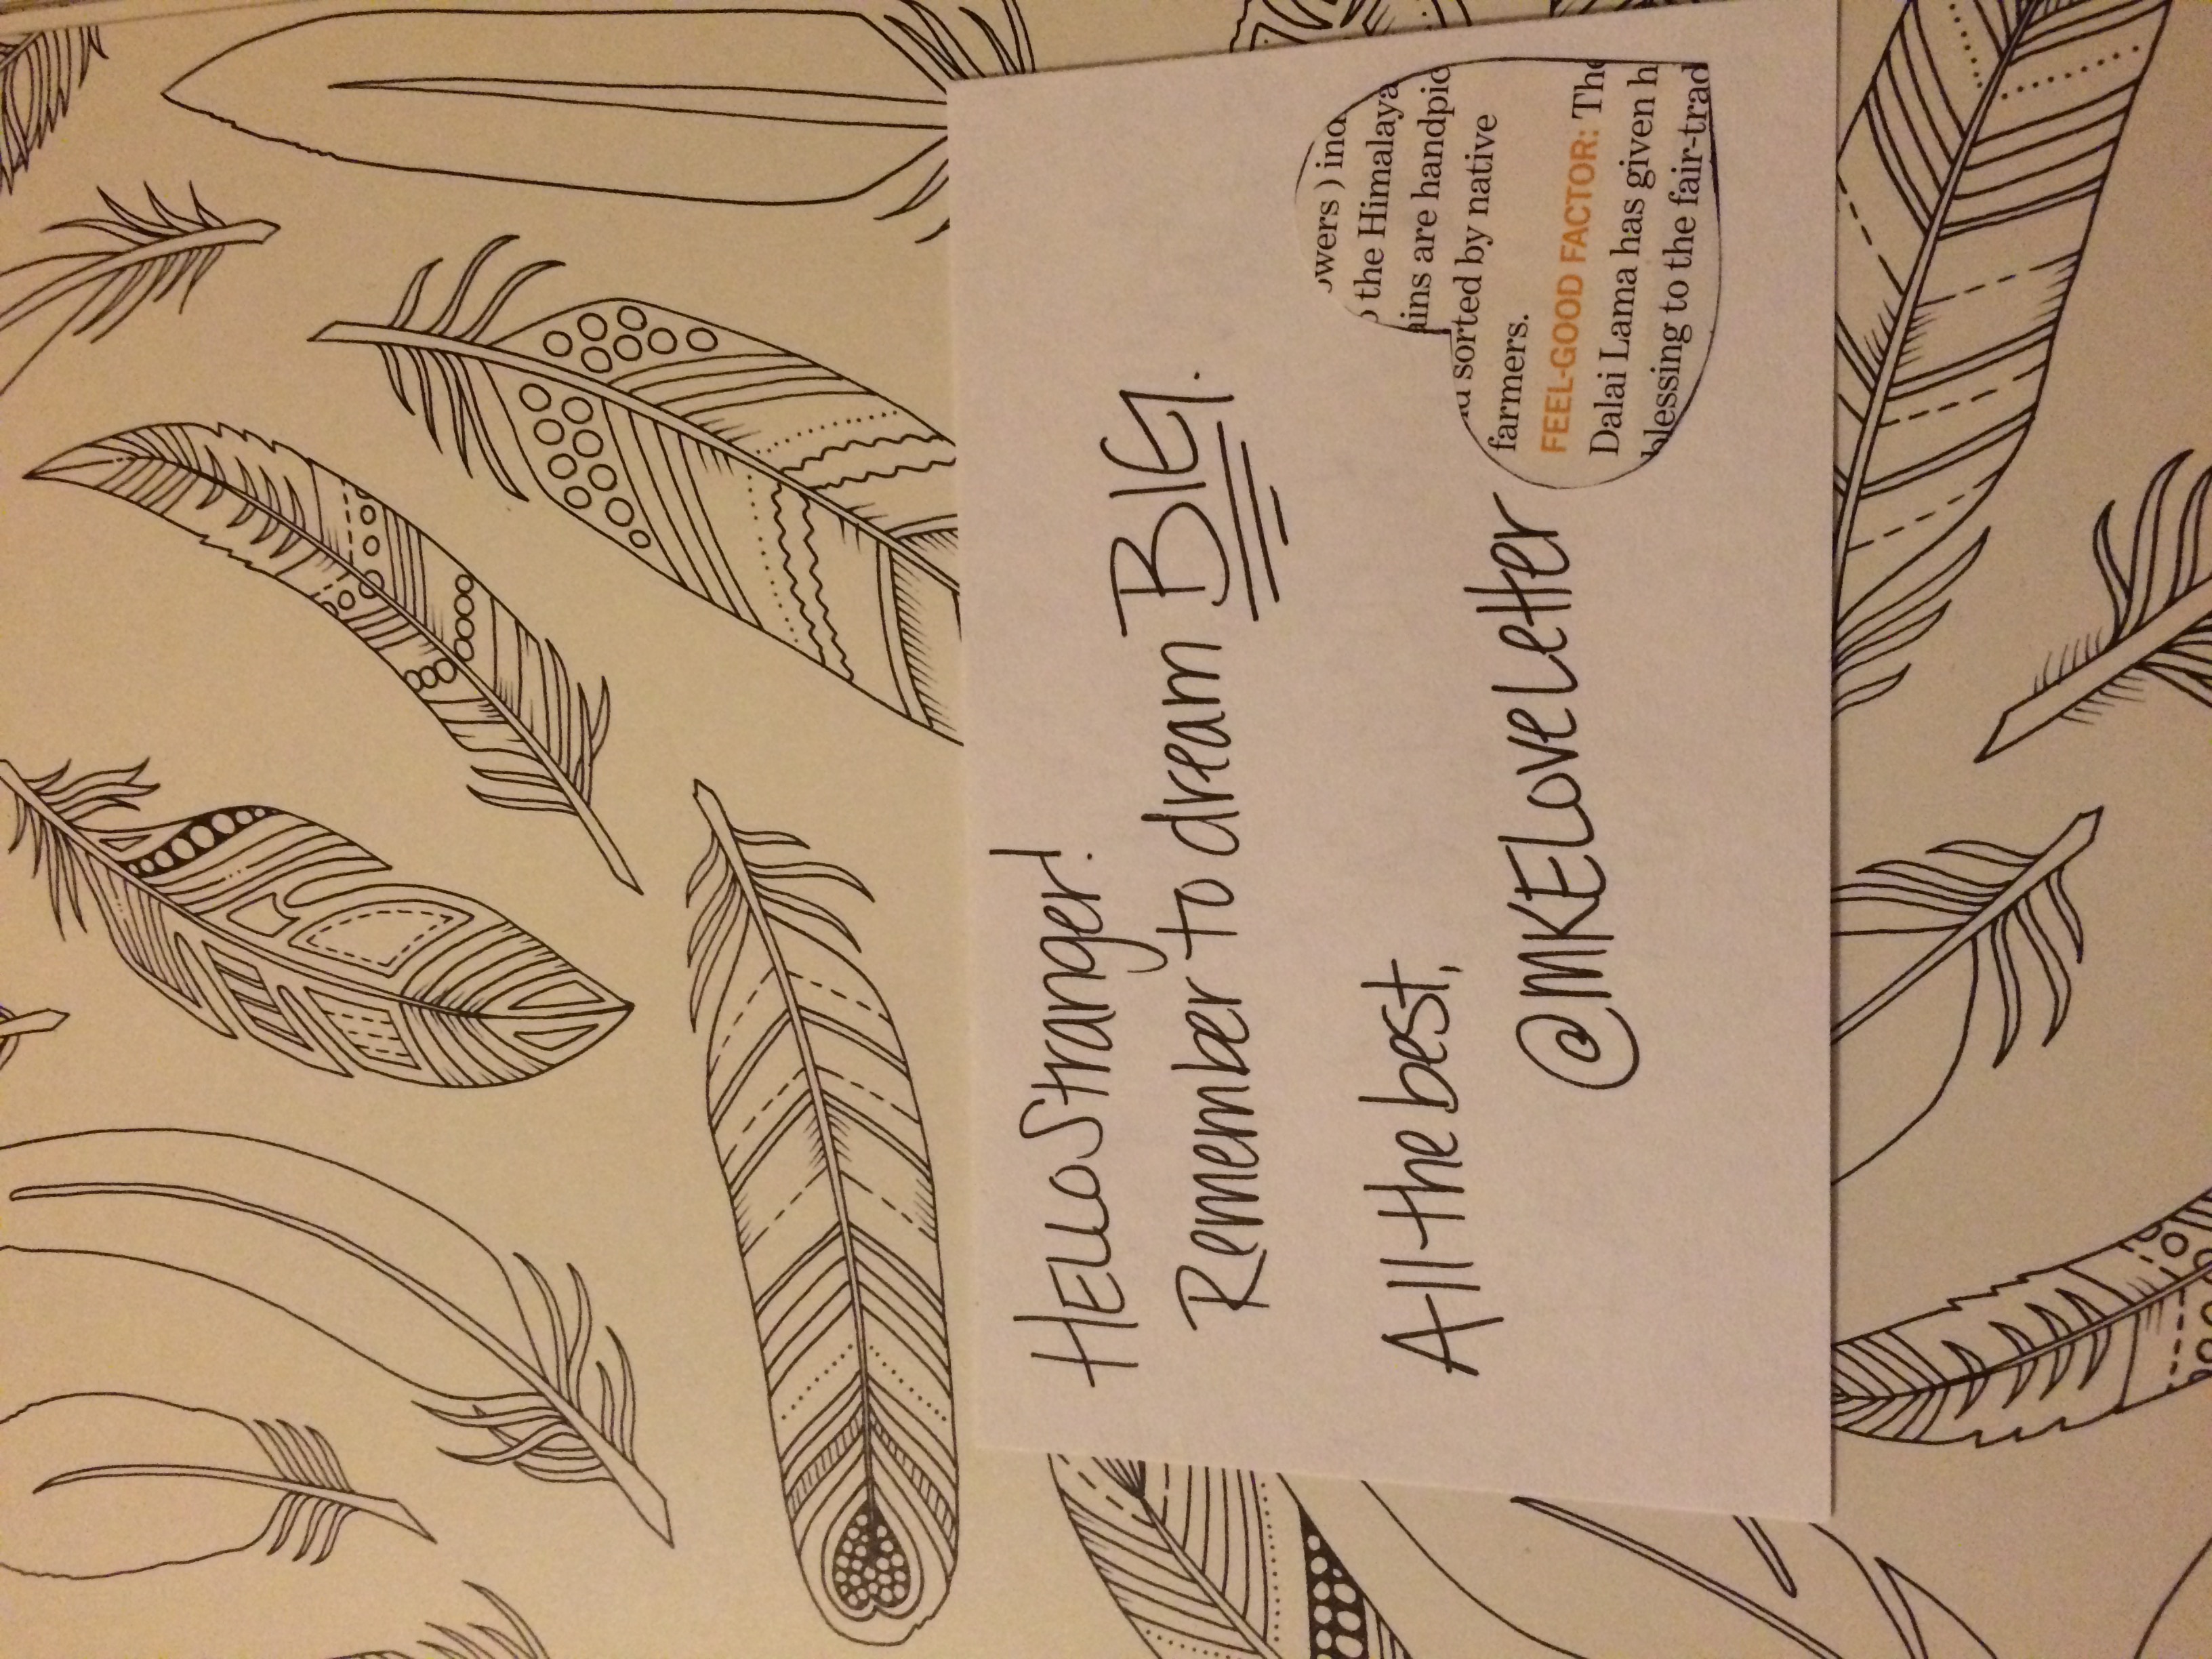 Hello Stranger!
Remember to dream BIG.
All the best,
@MKELoveLetter
the Himalaya
are handpic
sorted by native
farmers.
FEEL-GOOD FACTOR: The
Dalai Lama has given h
blessing to the fair-trad